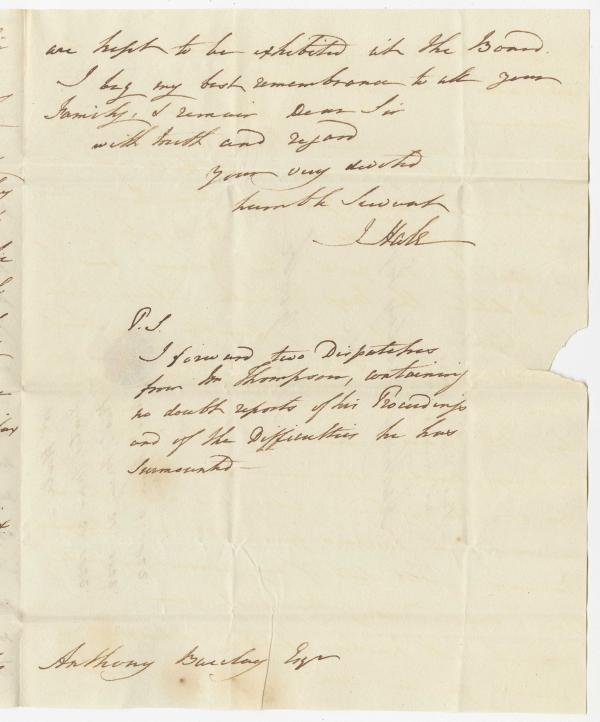 are kept to be exhibited at the Board.
I beg my best remembrance to all your
Family, & remain Dear Sir
with truth and regard
Your very devoted
humble Servant
J Hale
P.S.
I forward two Dispatches
from Mr Thompson, containing
no doubt reports of his Proceedings
and of the Difficulties he has
surmounted—
Anthony Barclay Esqr